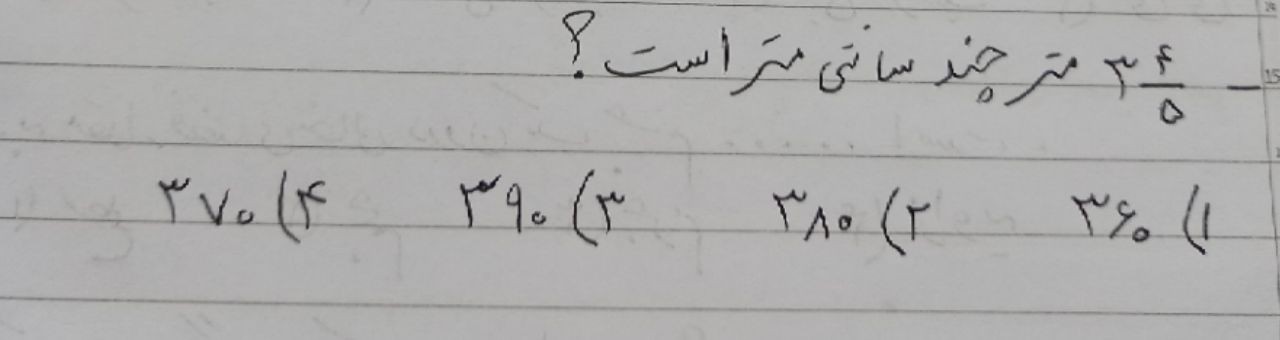 - ۳ ۴/۵ متر چند سانتی متر است؟
۱) ۳۶۰ ۲) ۳۸۰ ۳) ۳۹۰ ۴) ۳۷۰